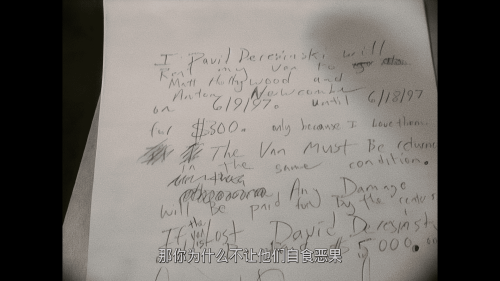 I David Deresinski will
Rent my van to
Matt Hollywood and
Anton Newcombe
on 6/9/97. until 6/18/97
for $300. only because I love them.
The Van Must Be returned
in the same condition.
Any Damage
will be paid for by the renters
If the van is Lost David Deresinski
5000.
那你为什么不让他们自食恶果